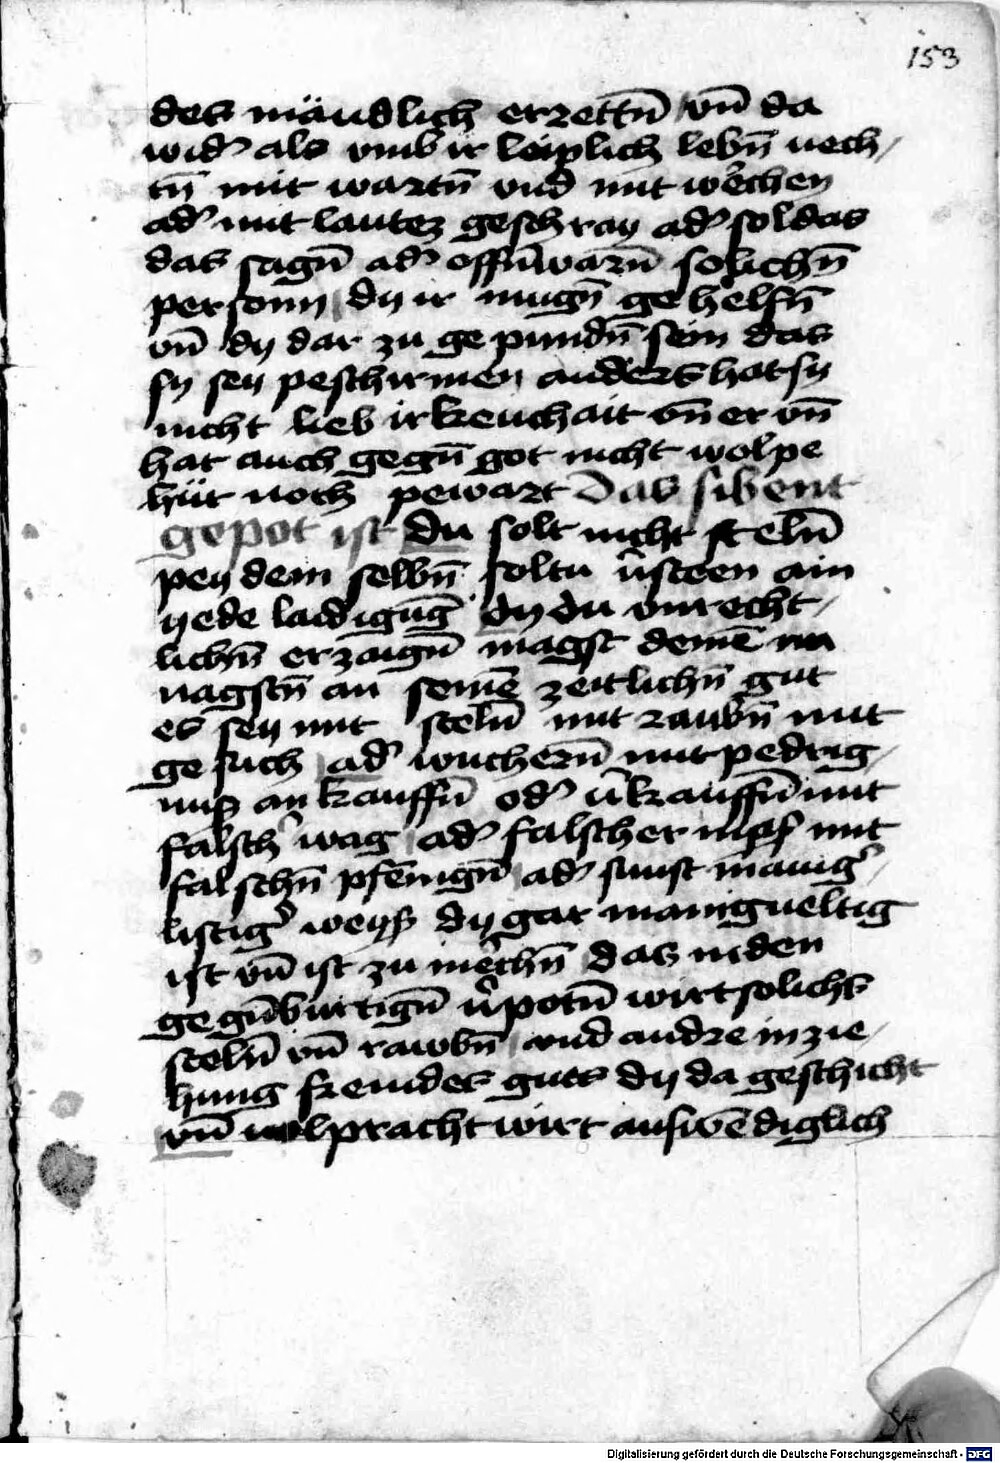 153
des mändlich erzettn̄ vn̄ da
wid' als vmb ir leiplich lebn̄ vech-
tn̄ mit wartn̄ vnd mit wechen
ad' mit lautez geschray ad' sol das
das sagn̄ ad' offn̄warn̄ solichn̄
personn dy ir mugn̄ gehelfn̄
vn̄ dy dar zu ge pundn̄ sein das
sy sey peschirmen anders hat sy
nicht lieb ir keuchait vn̄ er vn̄
hat auch gegn̄ got nicht wol pe
hüt noch pewart Das sibent
gepot ist du solt nicht steln̄
pey dem selbn̄ soltu v̉steen ain
yede laidigūg dy du vnrecht-
lichn̄ erzaign̄ magst deinē
nagstn̄ an seinē zeitlichn̄ gut
es sey mit steln̄ mit raubn̄ mit
gesuch ad' wuchern̄ mit pedrig-
nuß an kauffn̄ od' v̉kauffn̄ mit
falsch' wag ad' falscher mit
falschn̄ pfēnign̄ ad' sunst manig'
listig' weyß dy gar manigueltig
ist vn̄ ist zu mechn̄ das in den
gegn̄burtign̄ v̉potn̄ wirt solichs
steln̄ vn̄ rawbn̄ vnd andre inzie-
hung fremdes guts dy da geschicht
vn̄ wolpracht wirt auswēdiglich
Digitalisierung gefördert durch die Deutsche Forschungsgemeinschaft - DFG